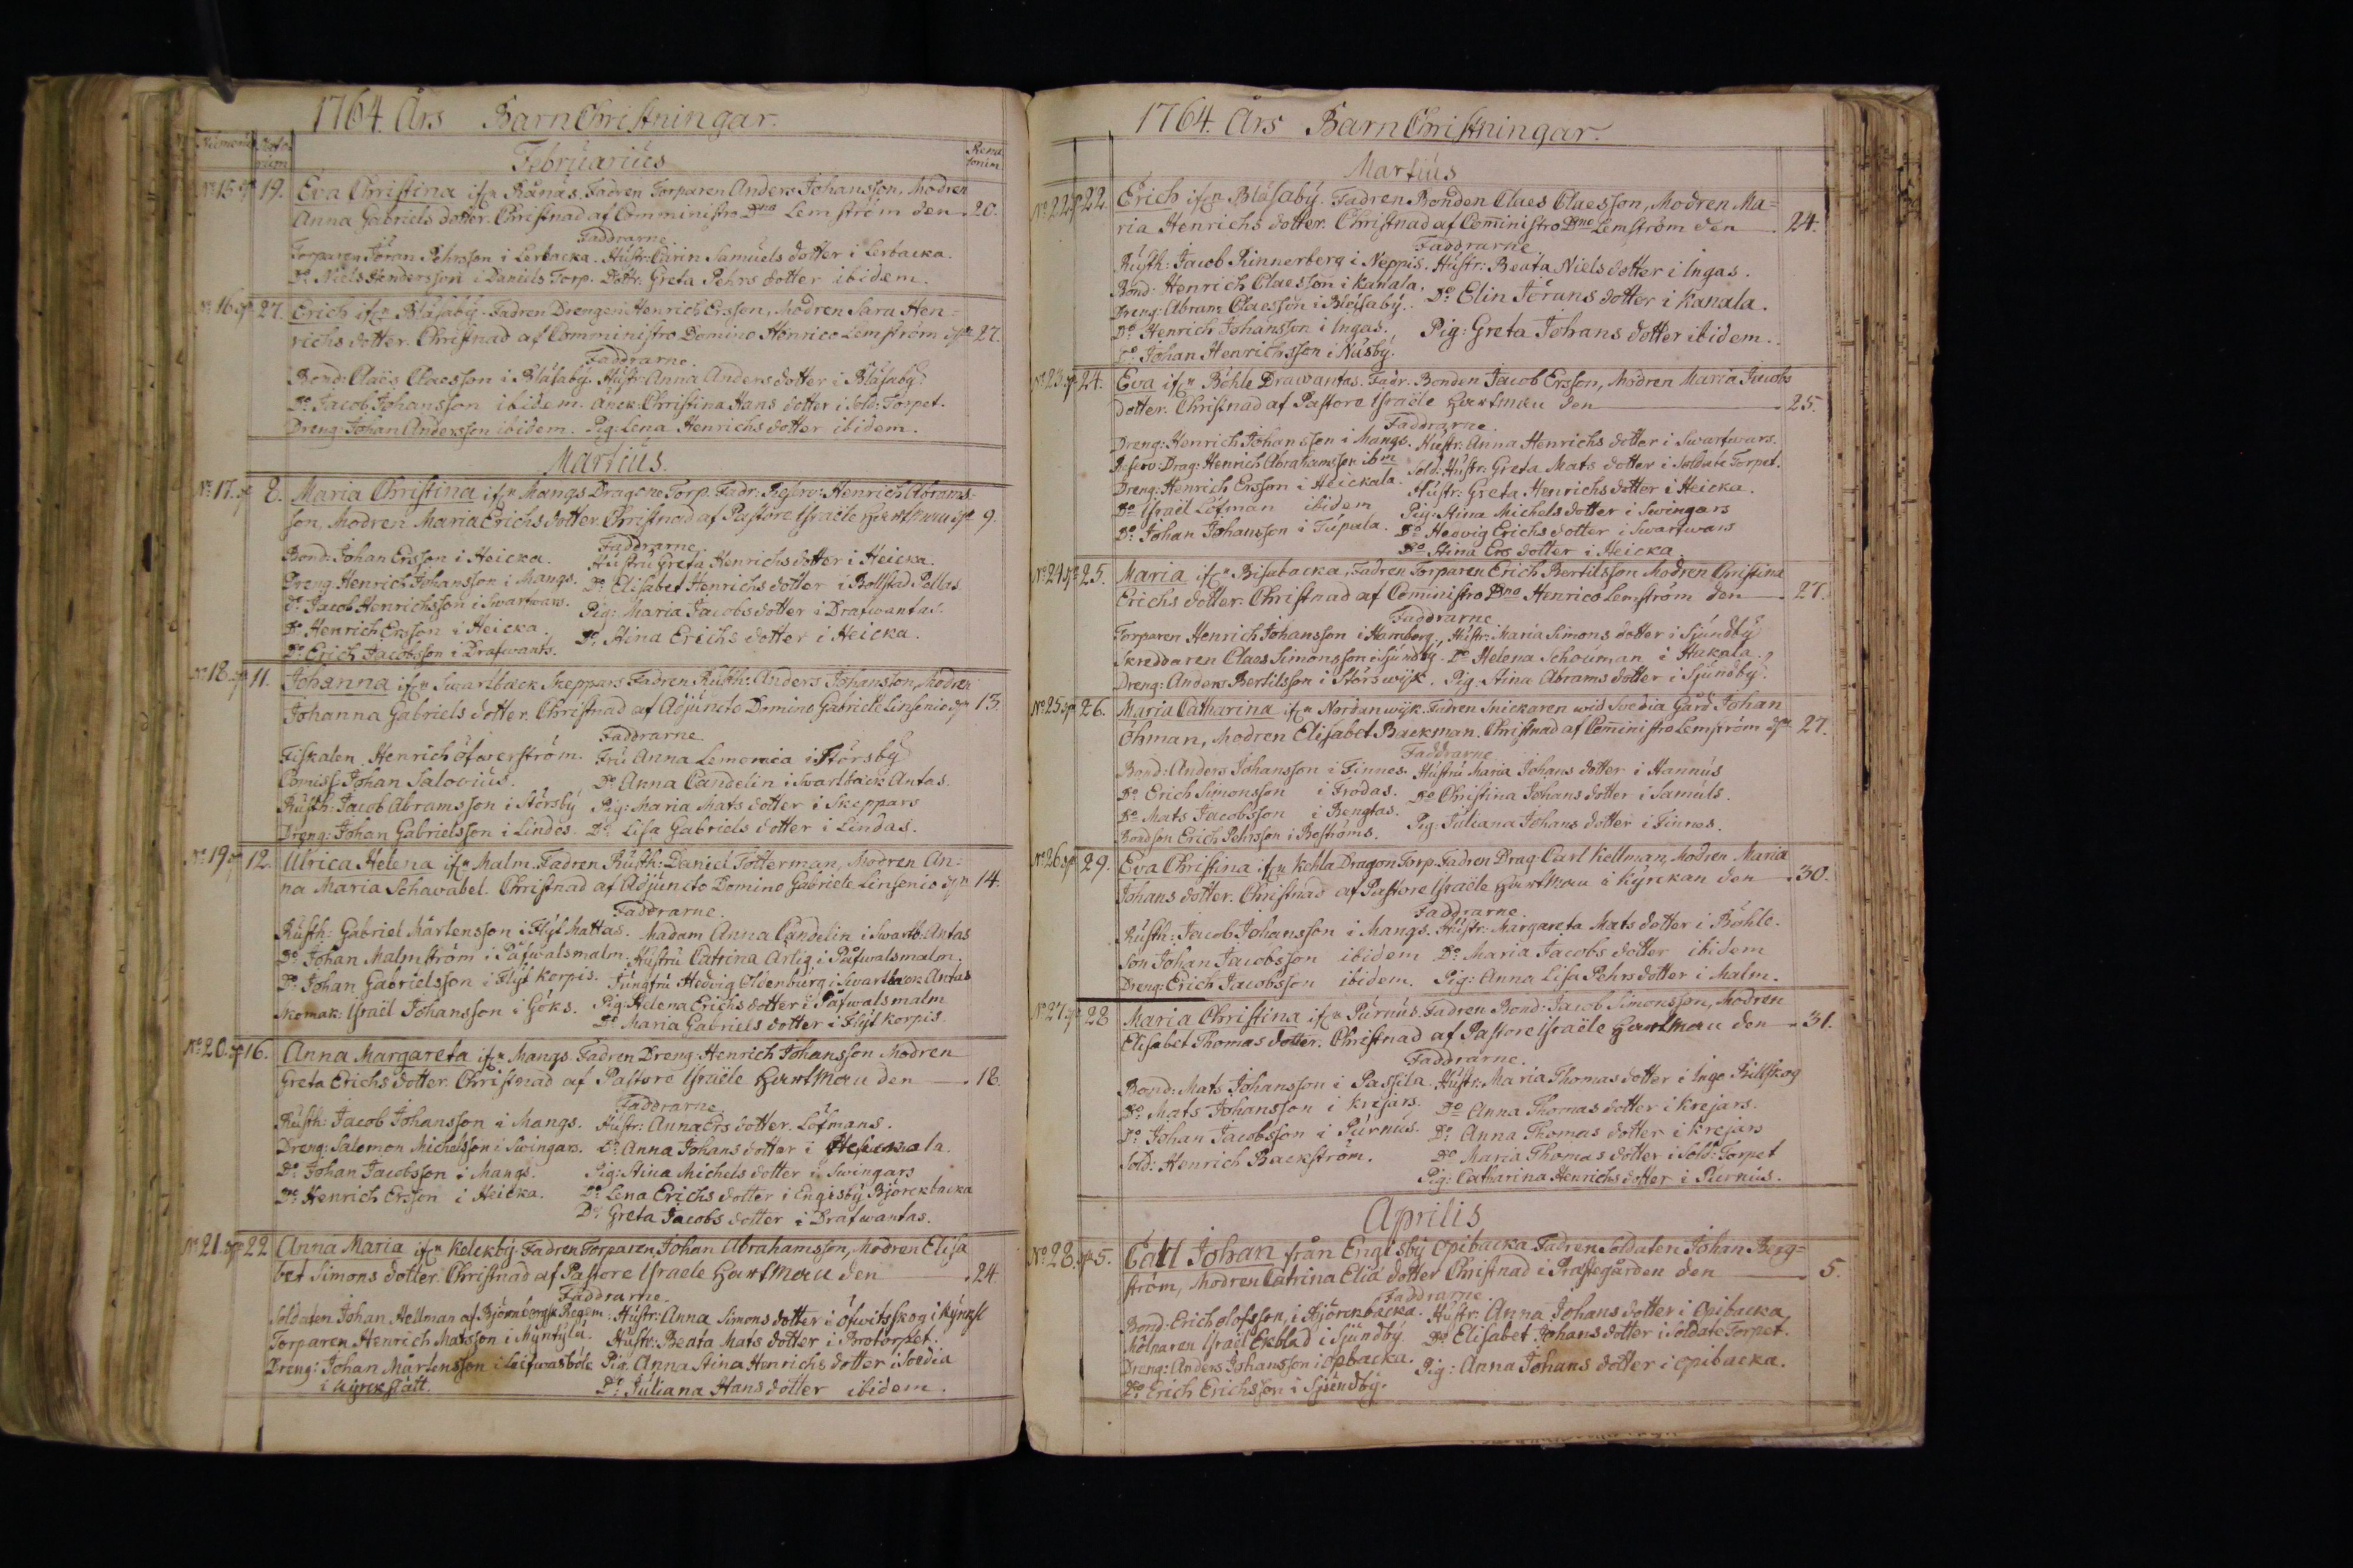 1764. Års Barn Christningar.
Februarius
No 15. 19. Eva Christina Rånäs. Fadren Torparen Anders Johansson, Modren
Anna Gabriels dotter. Christnad af Comministro Dno Lemström den 20.
Faddrarne
Torparen Jöran Pehrsson i Lerbacka. Hustr: Carin Samuels dotter i Lerbacka.
Do Niels Hendersson i Daniels Torp. Dottr. Greta Pehrs dotter ibidem.
No 16 27. Erich Blåsaby. Fadren Drengen Henrich Ersson, Modren Sara Hen=
richs dotter. Christnad af Comministro Domino Henrico Lemström 27.
Faddrarne.
Bond: Claës Claesson i Blåsaby. Hustr: Anna Anders dotter i Blåsaby.
Do Jacob Johansson ibidem. Änck: Christina Hans dotter i Sold: Torpet.
Dreng: Johan Andersson ibidem. Pig: Lena Henrichs dotter ibidem.
Martius.
No 17. 8. Maria Christina Mangs Dragone Torp. Fadr: Reserv: Henrich Abrams=
son, Modren Maria Erichs dotter. Christnad af Pastore Israële Hartman 9.
Faddrarne.
Bond: Johan Ersson i Heicka. Hustru Greta Henrichs dotter i Heicka.
Dreng Henrich Johansson i Mangs. Do Elisabet Henrichs dotter i Bollstad Pellas.
Do Jacob Henrichsson i Swartwars. Pig: Maria Jacobs dotter i Drafwantas.
Do Henrich Ersson i Heicka. Do Stina Erichs dotter i Heicka.
Do Erich Jacobsson i Drafwants.
No 18. 11. Johanna Swartback Skeppars Fadren Rusth: Anders Johansson, Modren
Johanna Gabriels dotter. Christnad af Adjuncto Domino Gabriele Linsenio 13.
Faddrarne
Fiskalen Henrich Öfwerström. Fru Anna Lemonica i Störsby
Comiss: Johan Salovius. Do Anna Candelin i Swartback Antas.
Rusth: Jacob Abramsson i Störsby Pig: Maria Mats dotter i Skeppars
Dreng: Johan Gabrielsson i Lindes. Do Lisa Gabriels dotter i Lindas.
No 19 12. Ulrica Helena Malm. Fadren Rusth: Daniel Tötterman, Modren An=
na Maria Schavabel. Christnad af Adjuncto Domino Gabriele Linsenio 14.
Faddrarne.
Rusth: Gabriel Mårtensson i Flyt Mattas. Madam Anna Candelin i Swartb: Antas
Do Johan Malmström i Påfwalsmalm. Hustru Catrina Ärlig i Påfwalsmalm.
Do Johan Gabrielsson i Flyt Korpis. Jungfru Hedvig Oldenburg i Swartback Antas
Skomak: Israël Johansson i Göks. Pig: Helena Erichs dotter i Påfwalsmalm
Do Maria Gabriels dotter i Flyt Korpis.
No 20. 16. Anna Margareta Mangs. Fadren Dreng: Henrich Johansson Modren
Greta Erichs dotter. Christnad af Pastore Israële Hartman den 18.
Faddrarne
Rusth: Jacob Johansson i Mangs. Hustr: Anna Ers dotter Löfmans.
Dreng: Salomon Michelsson i Swingars. Do Anna Johans dotter i
Do Johan Jacobsson i Mangs. Pig: Stina Michels dotter i Swingars
Do Henrich Ersson i Heicka. Do Lena Erichs dotter i Engisby Björckbacka
Do Greta Jacobs dotter i Drafwantas.
No 21. 22 Anna Maria Kelckby. Fadren Torparen Johan Abrahamsson, Modren Elisa
bet Simons dotter. Christnad af Pastore Israele Hartman den 24.
Faddrarne.
Soldaten Johan Hellman af Björneborgs Regem: Hustr: Anna Simons dotter i Öfwitskog i Kyrcksl
Torparen Henrich Matsson i Myntylä. Hustr: Beata Mats dotter i Brotorpet.
Dreng: Johan Mårtensson i Leifwasböle Pig: Anna Stina Henrichs dotter i Svidia
i Kyrckslätt. Do Juliana Hans dotter ibidem.
1764. Års Barn Christningar.
Martius
No 22 22. Erich Blåsaby. Fadren Bonden Claes Claesson, Modren Ma=
ria Henrichs dotter. Christnad af Comministro Dno Lemström den 24.
Faddrarne
Rusth: Jacob Rinnerberg i Neppis. Hustr: Beata Niels dotter i Ingas.
Bond: Henrich Claesson i Kanala. Do Elin Jörans dotter i Kanala.
Dreng: Abram Claesson i Blåsaby.
Do Henrich Johansson i Ingas. Pig: Greta Johans dotter ibidem.
Do Johan Henrichsson i Näsby.
No 23. 24. Eva Böhle Drawantas. Fadr. Bonden Jacob Ersson, Modren Maria Jacobs
dotter. Christnad af Pastore Israële Hartman den 25.
Faddrarne.
Dreng: Henrich Johansson i Mangs. Hustr: Anna Henrichs dotter i Swartwars.
Reserv: Drag: Henrich Abrahamsson ibm Sold: Hustr: Greta Mats dotter i Soldate Torpet.
Dreng: Henrich Ersson i Heickala. Hustr: Greta Henrichs dotter i Heicka.
Do Israël Löfman ibidem Pig: Stina Michels dotter i Swingars
Do Johan Johansson i Tupala. Do Hedvig Erichs dotter i Swartwars
Do Stina Ers dotter i Heicka
No 24 25. Maria Bisabacka, Fadren Torparen Erich Bertilsson Modren Christina
Erichs dotter. Christnad af Coministro Dno Henrico Lemström den 27.
Faddrarne
Torparen Henrich Johansson i Hamberg. Hustr: Maria Simons dotter i Sjundby
Skreddaren Claes Simonsson i Sjundby. Do Helena Schouman i Hakala.
Dreng: Anders Bertilsson i Störswijk. Pig: Stina Abrams dotter i Sjundby.
No 25 26. Maria Catharina Nordanwijk. Fadren Snickaren wid Svidia Gård Johan
Öhman, Modren Elisabet Backman. Christnad af Comministro Lemström 27.
Faddrarne
Bond: Anders Johansson i Finnes. Hustru Maria Johans dotter i Hannus
Do Erich Simonsson i Frodas. Do Christina Johans dotter i Samuls.
Do Mats Jacobsson i Bengtas. Pig: Juliana Johans dotter i Finnes.
Bondson Erich Pehrsson i Boströms.
No 26 29. Eva Christina Kehla Dragon Torp. Fadren Drag: Carl Kellman, Modren Maria
Johans dotter. Christnad af Pastore Israële Hartman i Kyrckan den 30.
Faddrarne.
Rusth: Jacob Johansson i Mangs. Hustr: Margareta Mats dotter i Böhle.
Son Johan Jacobsson ibidem Do Maria Jacobs dotter ibidem
Dreng: Erich Jacobsson ibidem. Pig: Anna Lisa Pehrs dotter i Malm.
No 27. 28 Maria Christina Purnus. Fadren Bond: Jacob Simonsson, Modren
Elisabet Thomas dotter. Christnad af Pastore Israële Hartman den 31.
Faddrarne.
Bond: Mats Johansson i Passila. Hustr: Maria Thomas dotter i Inge Billskog
Do Mats Johansson i Krejars. Do Anna Thomas dotter i Krejars.
Do Johan Jacobsson i Purnus. Do Anna Thomas dotter i Krejars
Sold: Henrich Backström. Do Maria Thomas dotter i Sold: Torpet
Pig: Catharina Henrichs dotter i Purnus.
Aprilis
No 28. 5. Carl Johan från Engisby Opibacka. Fadren Soldaten Johan Berg=
ström, Modren Catrina Eliä dotter Christnad i Prästegården den 5.
Faddrarne
Bond: Erich Olofsson, i Björckbacka. Hustr: Anna Johans dotter i Opibacka
Mölnaren Israël Ekblad i Sjundby. Do Elisabet Johans dotter i Soldate Torpet.
Dreng: Anders Johansson i Opbacka. Pig: Anna Johans dotter i Opibacka.
Do Erich Erichsson i Sjundby.